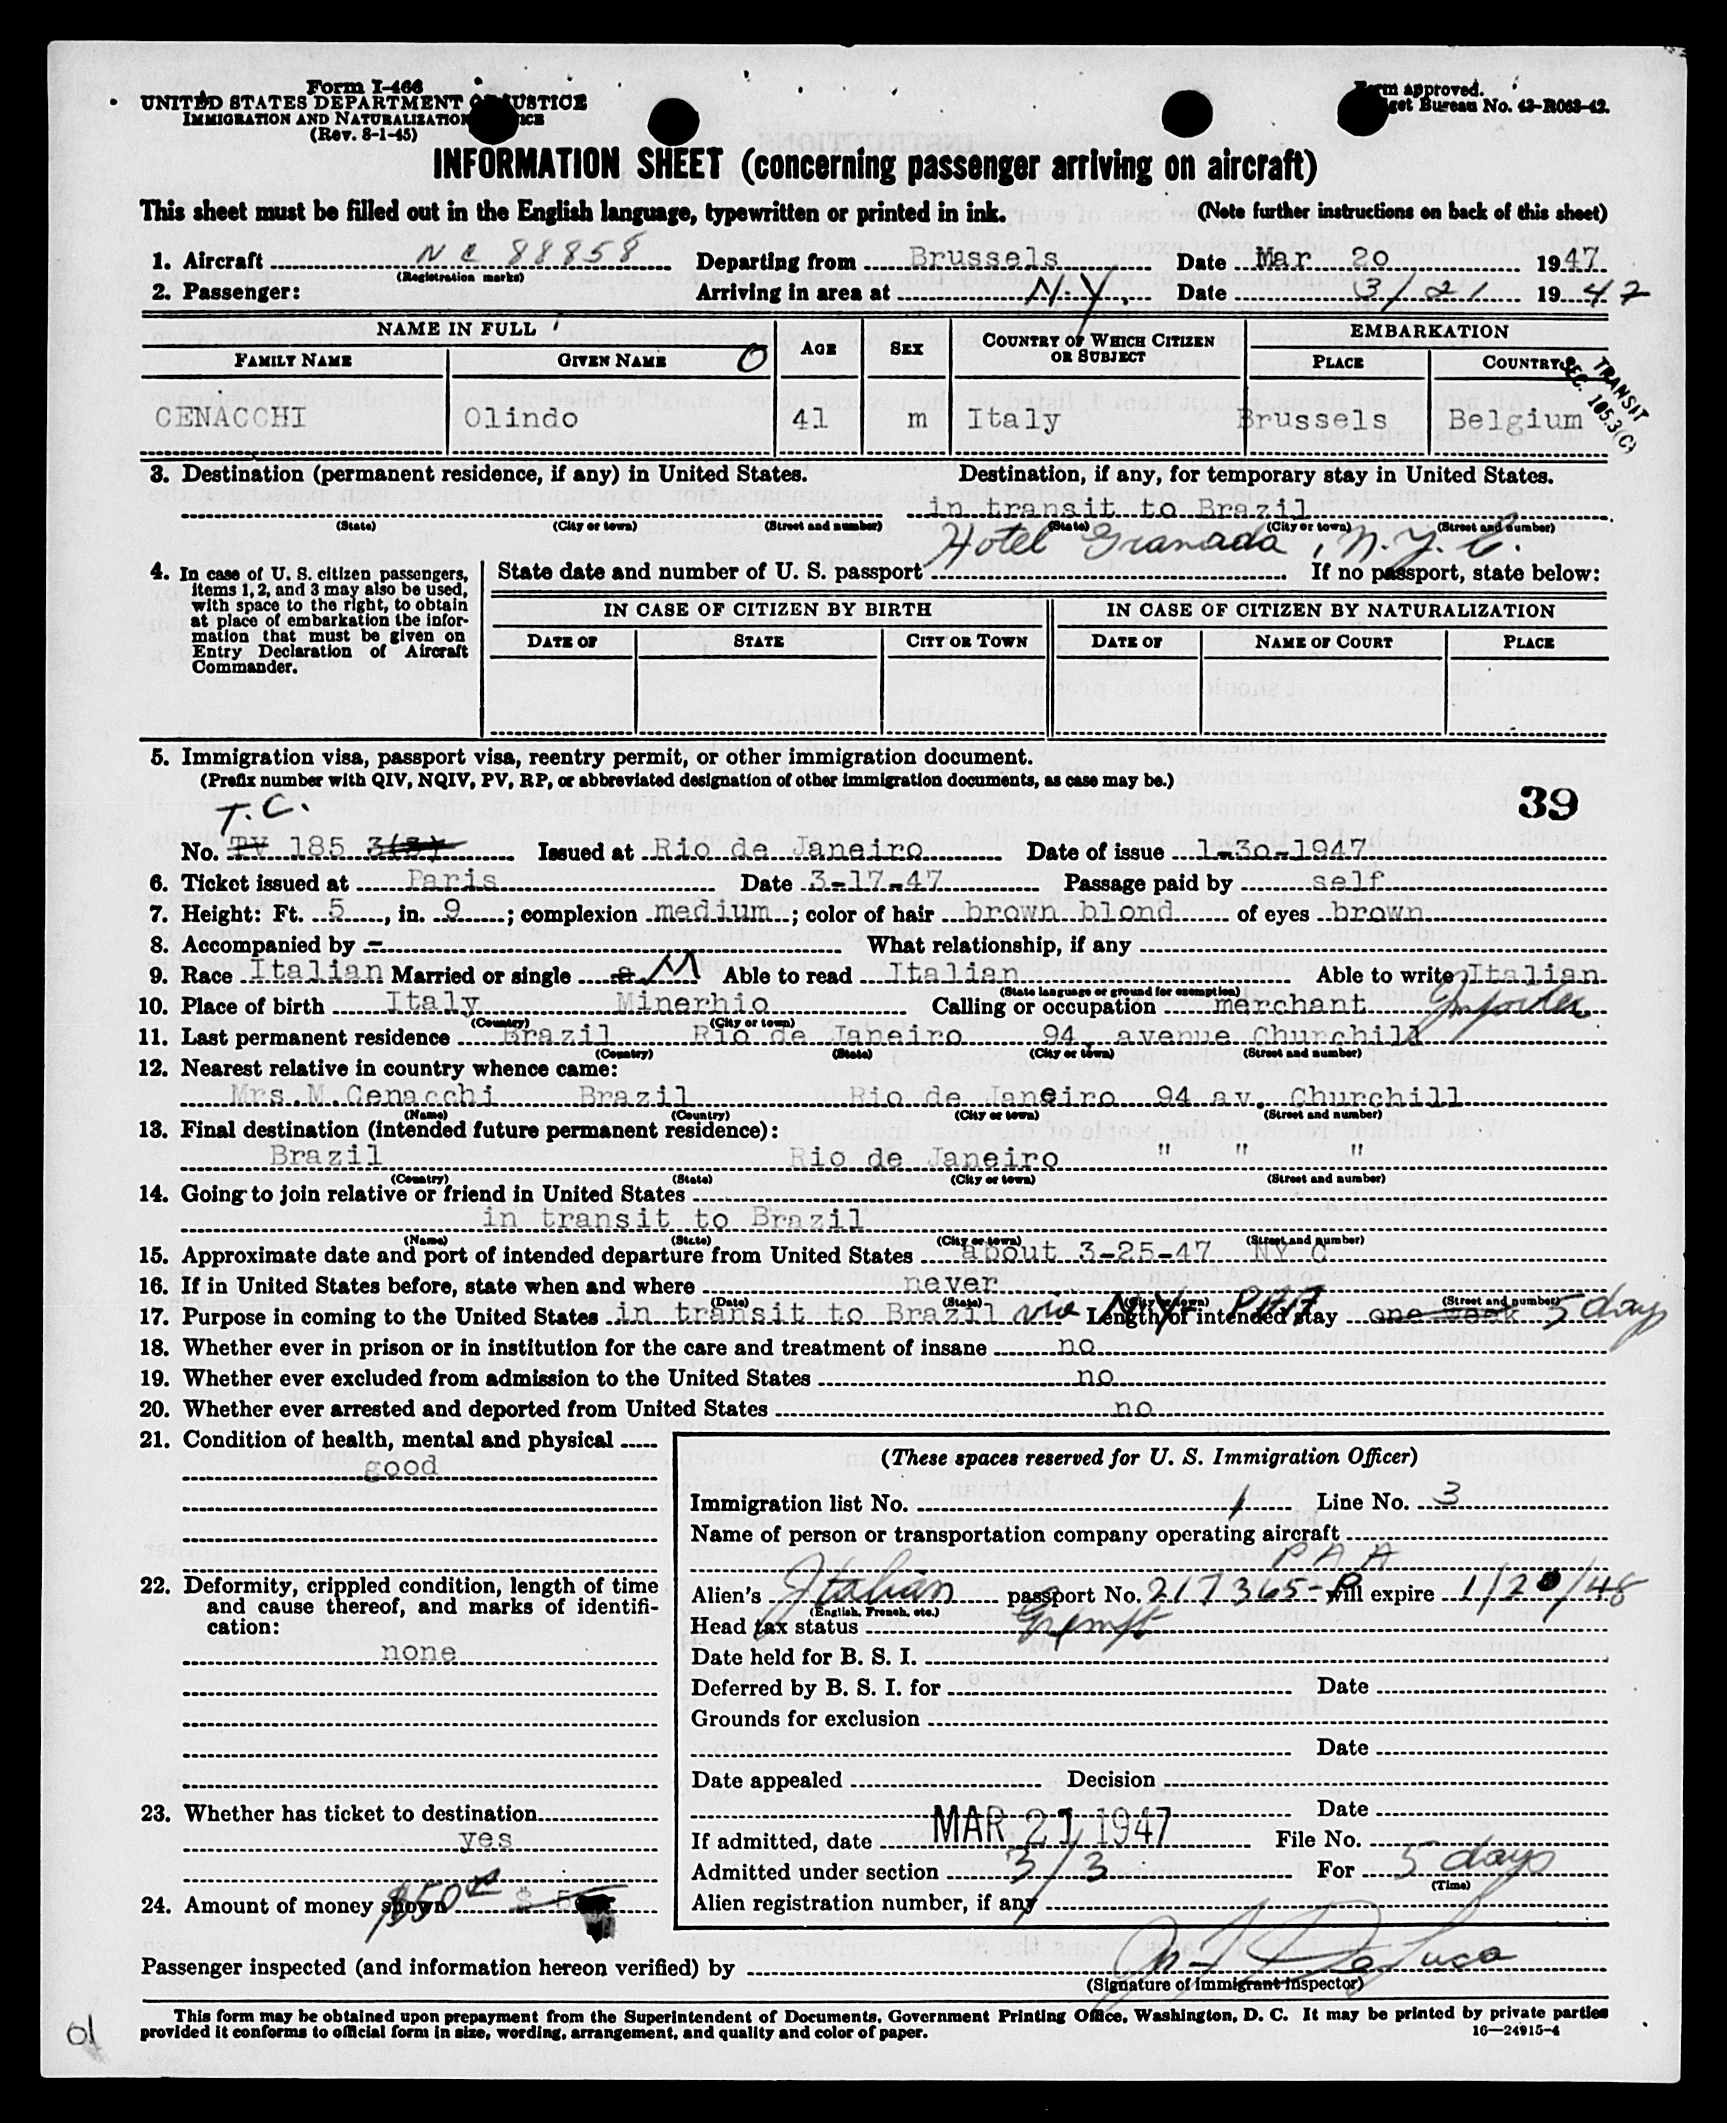 Form I-466
UNITED STATES DEPARTMENT OF JUSTICE
IMMIGRATION AND NATURALIZATION SERVICE
(Rev. 8-1-45)
Form approved.
Budget Bureau No. 43-R063-42.
INFORMATION SHEET (concerning passenger arriving on aircraft)
This sheet must be filled out in the English language, typewritten or printed in ink. (Note further instructions on back of this sheet)
1. Aircraft NC 88858 Departing from Brussels Date Mar 20 1947
(Registration marks)
2. Passenger: Arriving in area at N.Y. Date 3/21 1947
NAME IN FULL AGE SEX COUNTRY OF WHICH CITIZEN OR SUBJECT EMBARKATION
FAMILY NAME GIVEN NAME O PLACE COUNTRY
TRANSIT
SEC. 105.3(C)
CENACCHI Olindo 41 m Italy Brussels Belgium
3. Destination (permanent residence, if any) in United States. Destination, if any, for temporary stay in United States.
in transit to Brazil
(State) (City or town) (Street and number) (State) (City or town) (Street and number)
Hotel Granada, N.Y.C.
4. In case of U. S. citizen passengers, items 1, 2, and 3 may also be used, with space to the right, to obtain at place of embarkation the information that must be given on Entry Declaration of Aircraft Commander.
State date and number of U. S. passport If no passport, state below:
IN CASE OF CITIZEN BY BIRTH IN CASE OF CITIZEN BY NATURALIZATION
DATE OF STATE CITY OR TOWN DATE OF NAME OF COURT PLACE
5. Immigration visa, passport visa, reentry permit, or other immigration document.
(Prefix number with QIV, NQIV, PV, RP, or abbreviated designation of other immigration documents, as case may be.)
39
T.C.
No. TV 185 3(3) Issued at Rio de Janeiro Date of issue 1-30-1947
6. Ticket issued at Paris Date 3-17-47 Passage paid by self
7. Height: Ft. 5, in. 9; complexion medium; color of hair brown blond of eyes brown
8. Accompanied by - What relationship, if any
9. Race Italian Married or single M Able to read Italian Able to write Italian
(State language or ground for exemption)
10. Place of birth Italy Minerhio Calling or occupation merchant Importer
(Country) (City or town)
11. Last permanent residence Brazil Rio de Janeiro 94, avenue Churchill
(Country) (State) (City or town) (Street and number)
12. Nearest relative in country whence came:
Mrs.M.Cenacchi Brazil Rio de Janeiro 94 av. Churchill
(Name) (Country) (City or town) (Street and number)
13. Final destination (intended future permanent residence):
Brazil Rio de Janeiro " " "
(Country) (State) (City or town) (Street and number)
14. Going to join relative or friend in United States
in transit to Brazil
(Name) (State) (City or town) (Street and number)
15. Approximate date and port of intended departure from United States about 3-25-47 NY C
16. If in United States before, state when and where never
(Date) (State) (City or town) (Street and number)
17. Purpose in coming to the United States in transit to Brazil via NY PAA Length of intended stay one week 5 days
18. Whether ever in prison or in institution for the care and treatment of insane no
19. Whether ever excluded from admission to the United States no
20. Whether ever arrested and deported from United States no
21. Condition of health, mental and physical
good
22. Deformity, crippled condition, length of time and cause thereof, and marks of identification:
none
23. Whether has ticket to destination
yes
24. Amount of money shown $50.00
(These spaces reserved for U. S. Immigration Officer)
Immigration list No. 1 Line No. 3
Name of person or transportation company operating aircraft
PAA
Alien's Italian passport No. 217365-P will expire 1/20/48
(English, French, etc.)
Head tax status Exempt
Date held for B. S. I.
Deferred by B. S. I. for Date
Grounds for exclusion
Date
Date appealed Decision
Date
If admitted, date MAR 21 1947 File No.
Admitted under section 3/3 For 5 days
(Time)
Alien registration number, if any
Passenger inspected (and information hereon verified) by De Luca
(Signature of immigrant inspector)
This form may be obtained upon prepayment from the Superintendent of Documents, Government Printing Office, Washington, D. C. It may be printed by private parties
provided it conforms to official form in size, wording, arrangement, and quality and color of paper. 16—24915-4